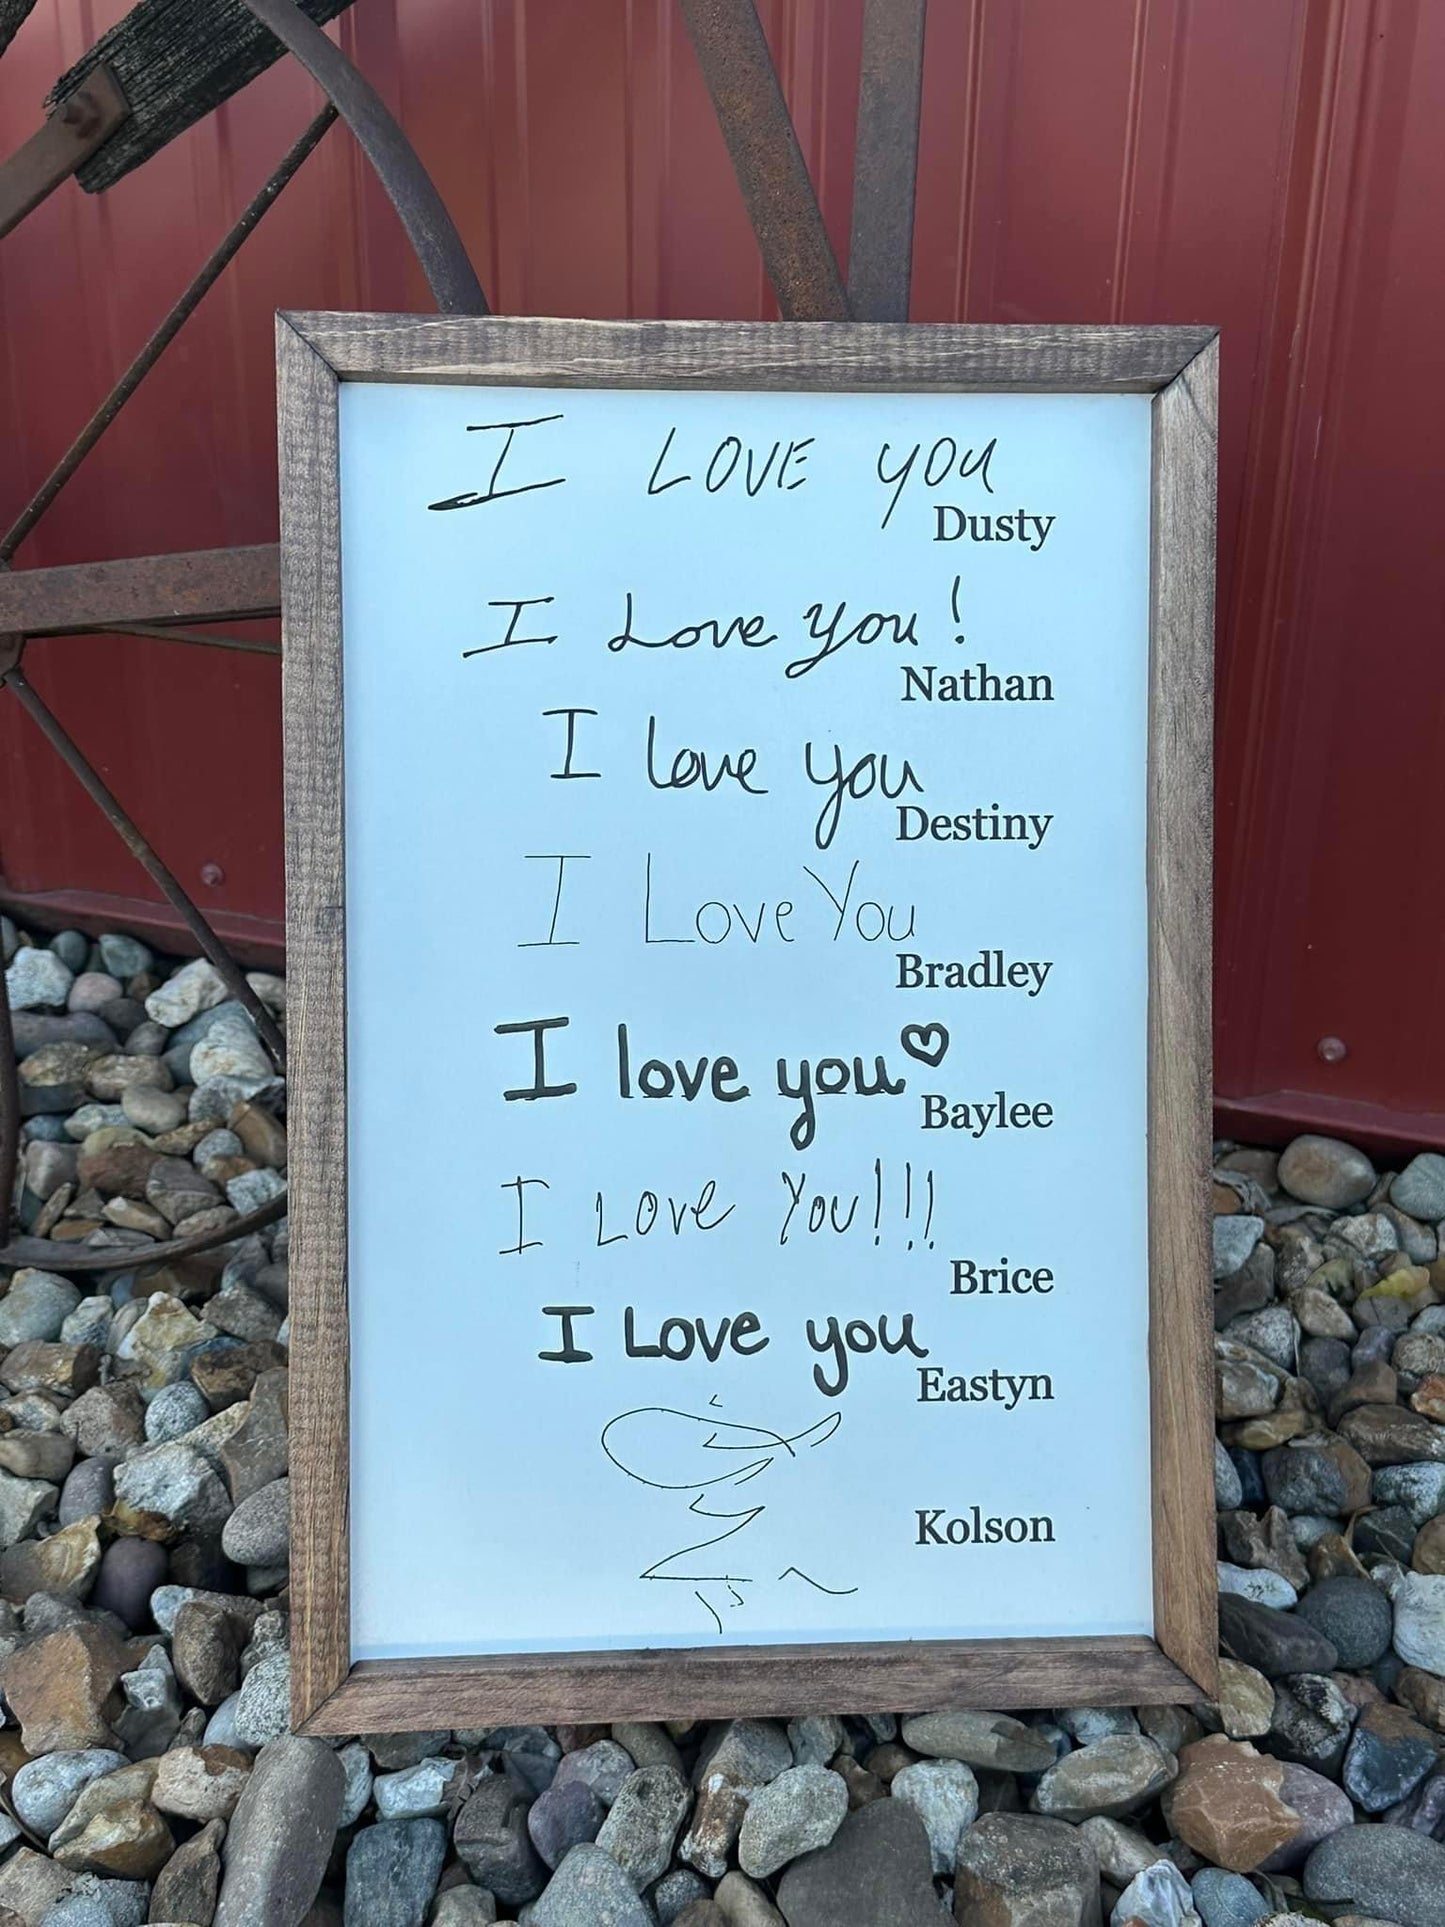 I LOVE YOU
Dusty
I Love you!
Nathan
I love you
Destiny
I Love You
Bradley
I love you♡
Baylee
I LOVe You!!!
Brice
I Love you
Eastyn
Kolson